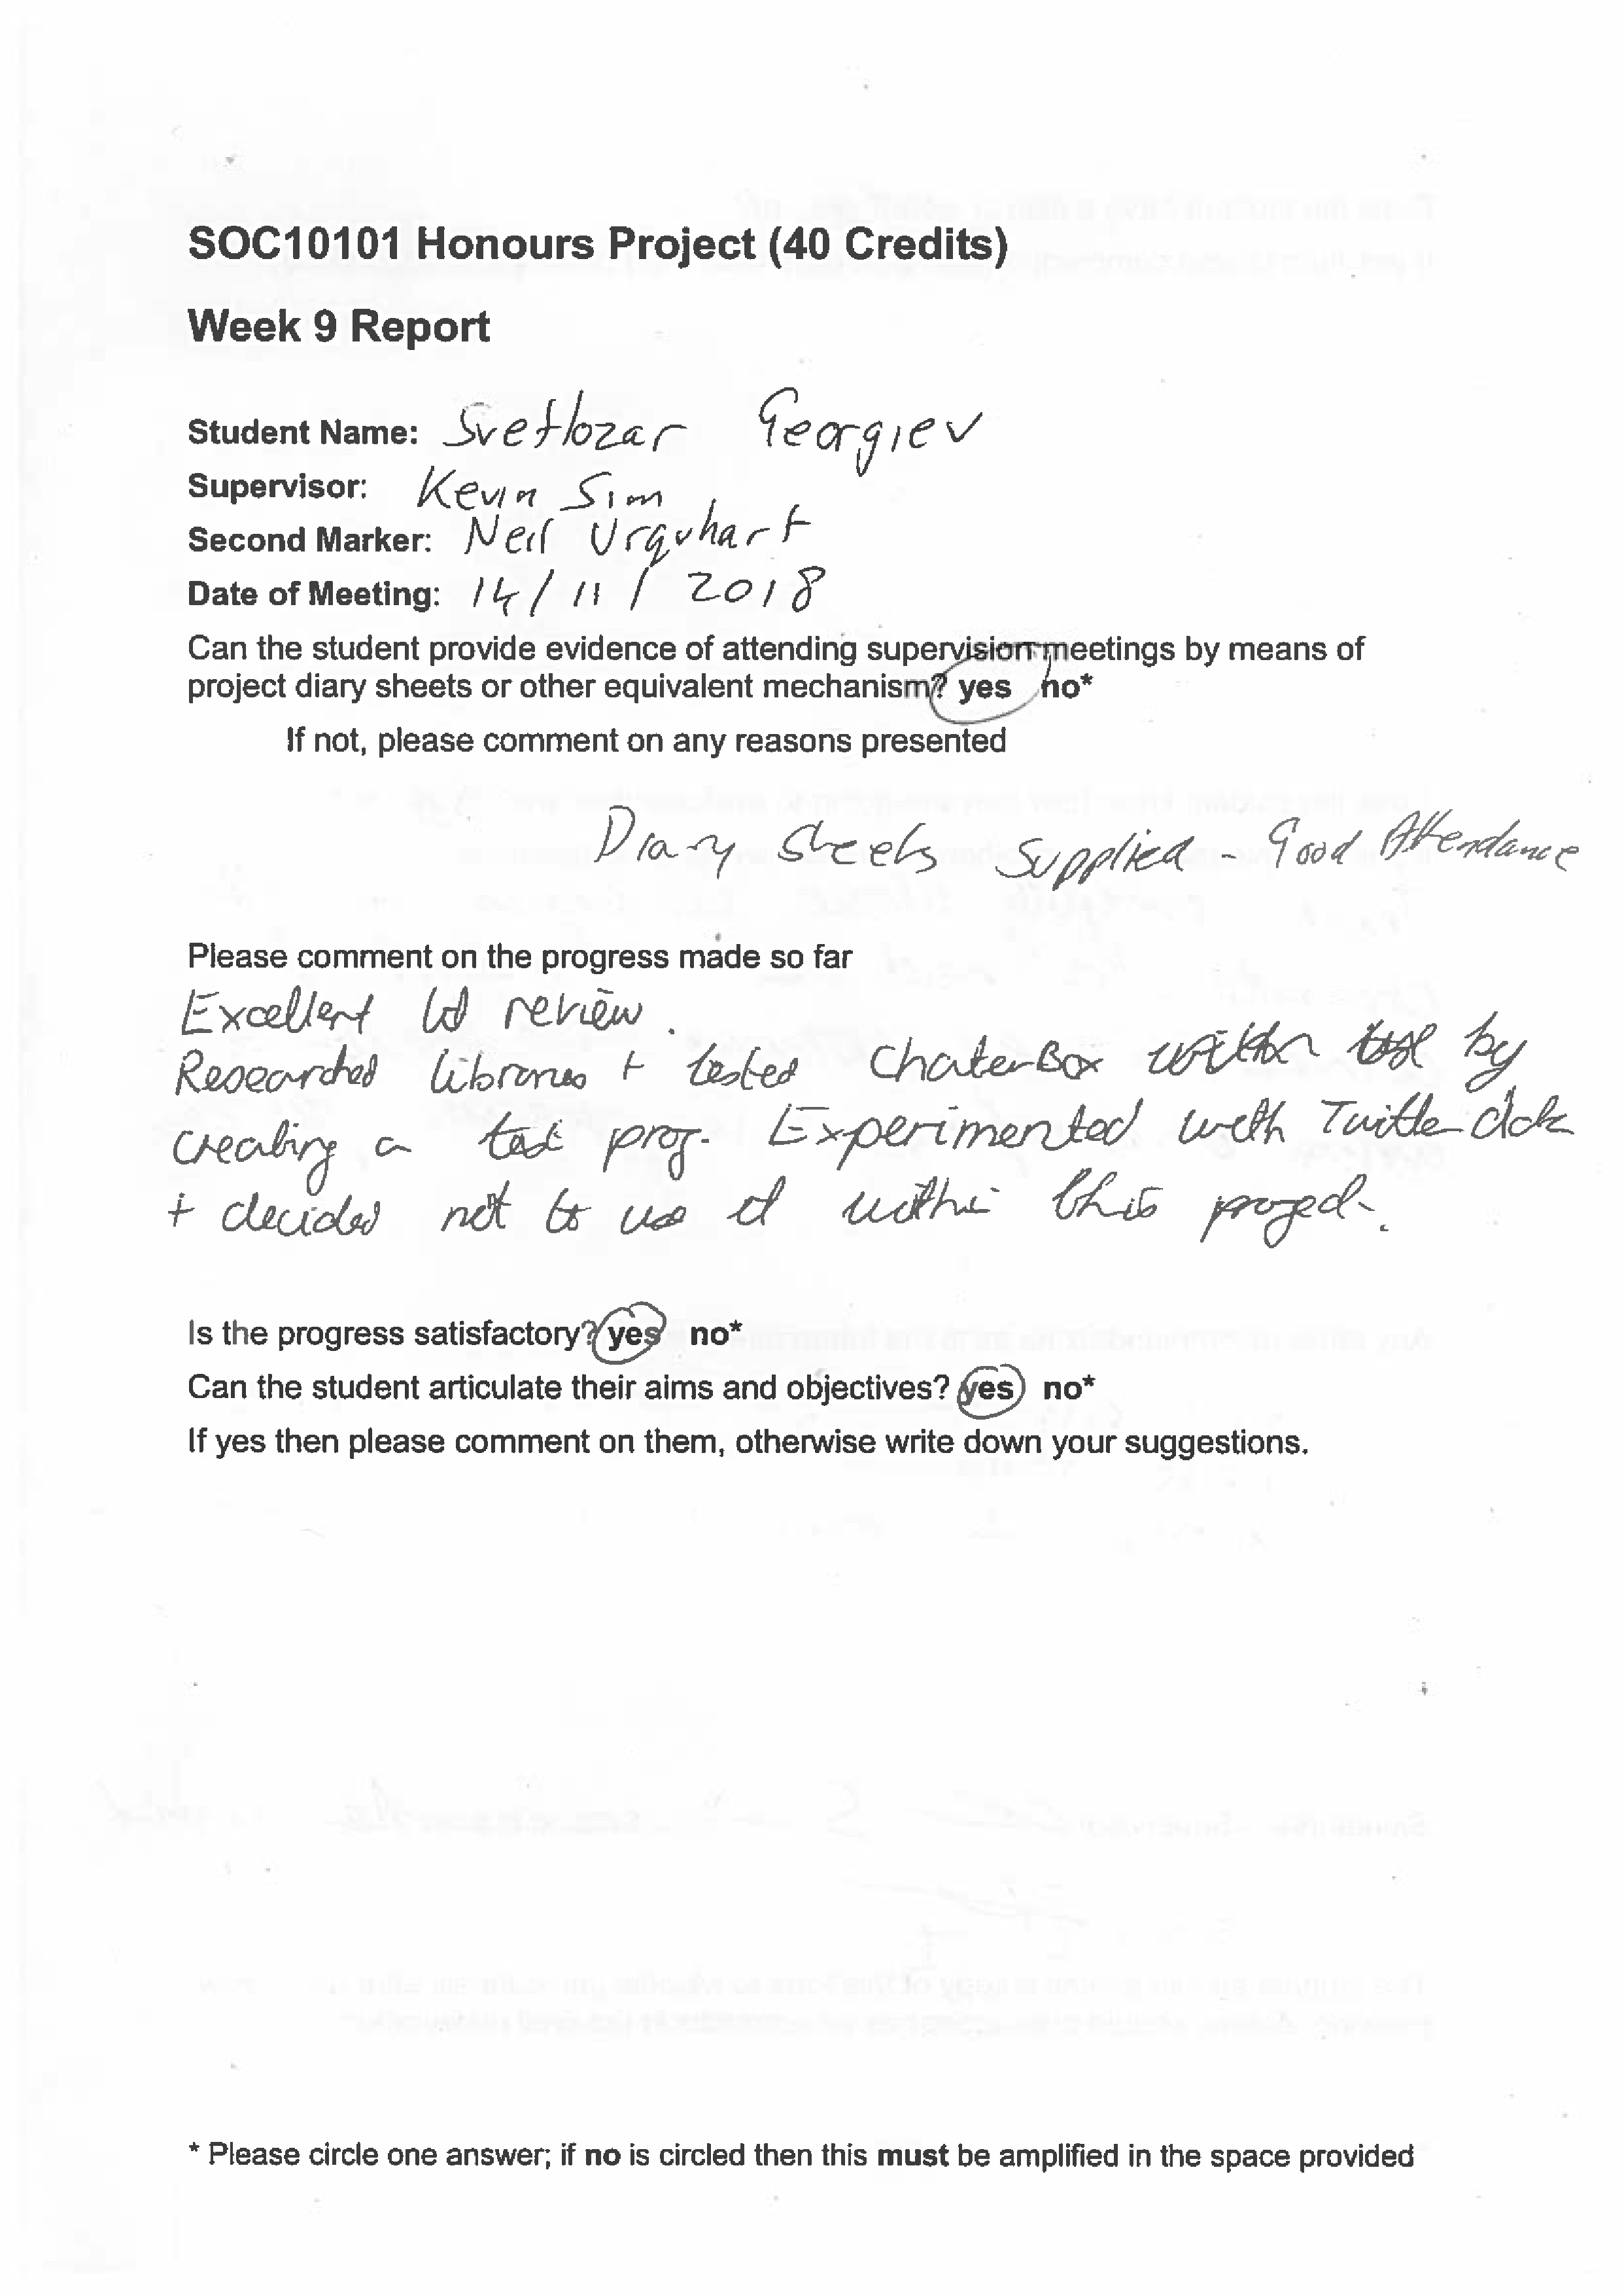 SOC10101 Honours Project (40 Credits)
Week 9 Report
Student Name: Svetlozar Georgiev
Supervisor: Kevin Sim
Second Marker: Neil Urquhart
Date of Meeting: 14/11/2018
Can the student provide evidence of attending supervision meetings by means of
project diary sheets or other equivalent mechanism? yes no*
If not, please comment on any reasons presented
Diary Sheets Supplied - Good Attendance
Please comment on the progress made so far
Excellent lit review.
Researched libraries + tested ChaterBox by
creating a test prog. Experimented with Twitter data
+ decided not to use it within this project.
Is the progress satisfactory? yes no*
Can the student articulate their aims and objectives? yes no*
If yes then please comment on them, otherwise write down your suggestions.
* Please circle one answer; if no is circled then this must be amplified in the space provided